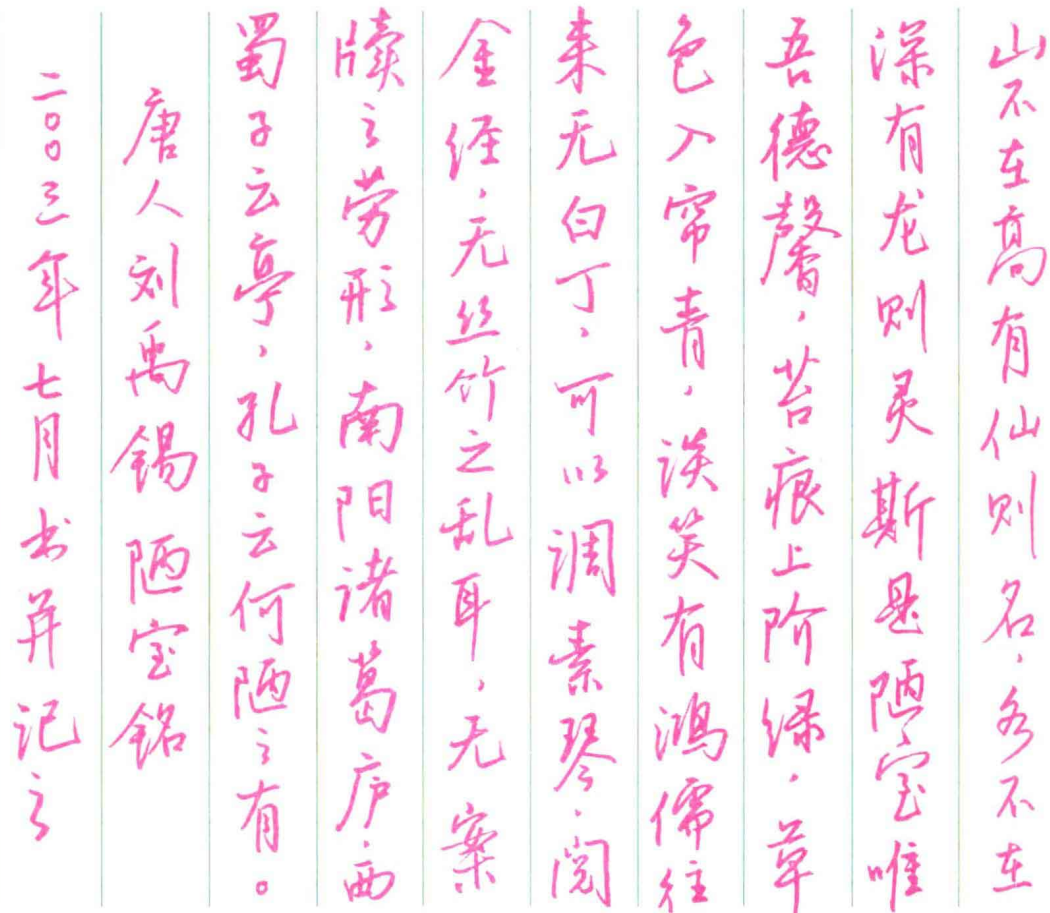 山不在高有仙则名，水不在
深有龙则灵斯是陋室唯
吾德馨，苔痕上阶绿，草
色入帘青，谈笑有鸿儒往
来无白丁，可以调素琴，阅
金经，无丝竹之乱耳，无案
牍之劳形，南阳诸葛庐，西
蜀子云亭，孔子云何陋之有。
唐人刘禹锡 陋室铭
二〇〇三年七月书并记之